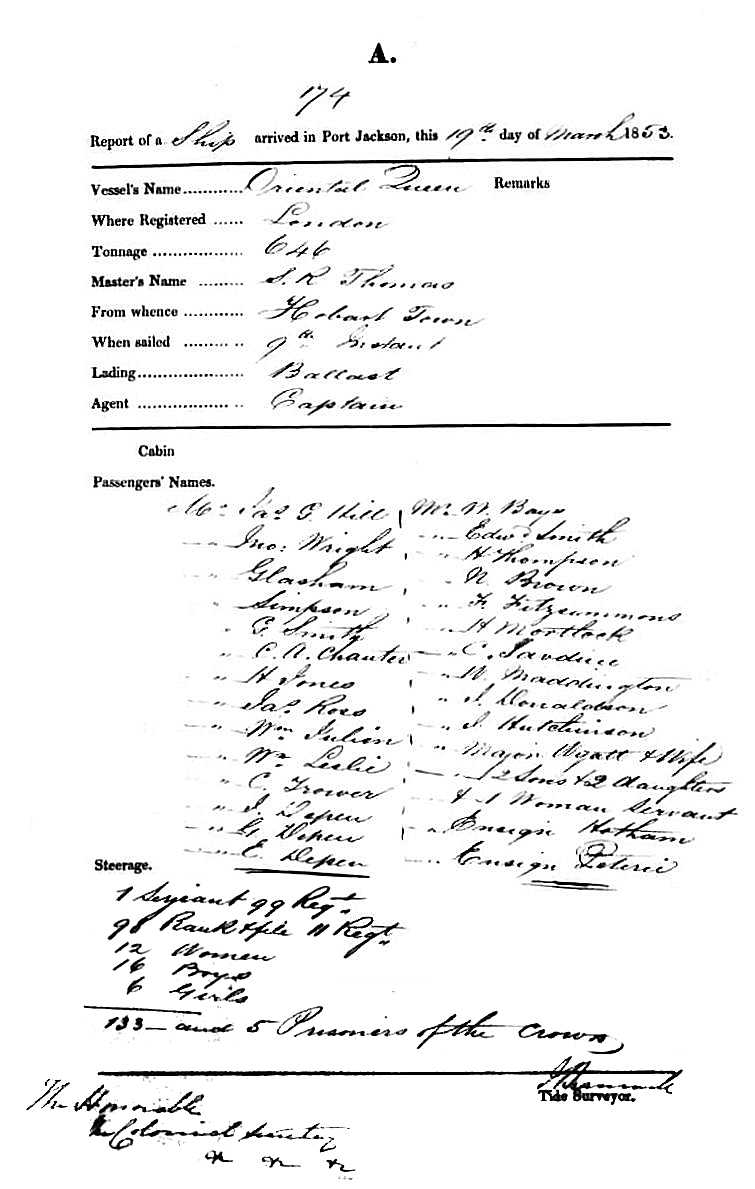 A.
174
Report of a Ship arrived in Port Jackson, this 19th day of March 1853.
Vessel's Name............ Oriental Queen Remarks
Where Registered ...... London
Tonnage .................. 646
Master's Name ......... S. R Thomas
From whence ............ Hobart Town
When sailed ......... .. 9th Instant
Lading..................... Ballast
Agent ................... .. Captain
Cabin
Passengers' Names.
Mr Jas G. Hill
" Jno: Wright
" Glasham
" Simpson
" G. Smith
" C. A. Chauter
" H Jones
" Jas Ross
" Wm Julion
" Wm Leslie
" C. Trower
" J. Depen
" G. Depen
" E. Depen
Mr W. Bays
" Edwd Smith
" H Thompson
" N Brown
" F. Fitzsummons
" H Mortlock
" C. Jardine
" W. Maddington
" J. Donaldson
" J. Hutchinson
" Major Wyatt & Wife
" 2 Sons & 2 daughters
" & 1 Woman Servant
" Ensign Hotham
" Ensign
Steerage.
1 Serjeant 99 Regt.
98 Rank & file 11 Regt.
12 Women
16 Boys
6 Girls
133 — and 5 Prisoners of the Crown
Tide Surveyor.
The Honorable
The Colonial Secretary